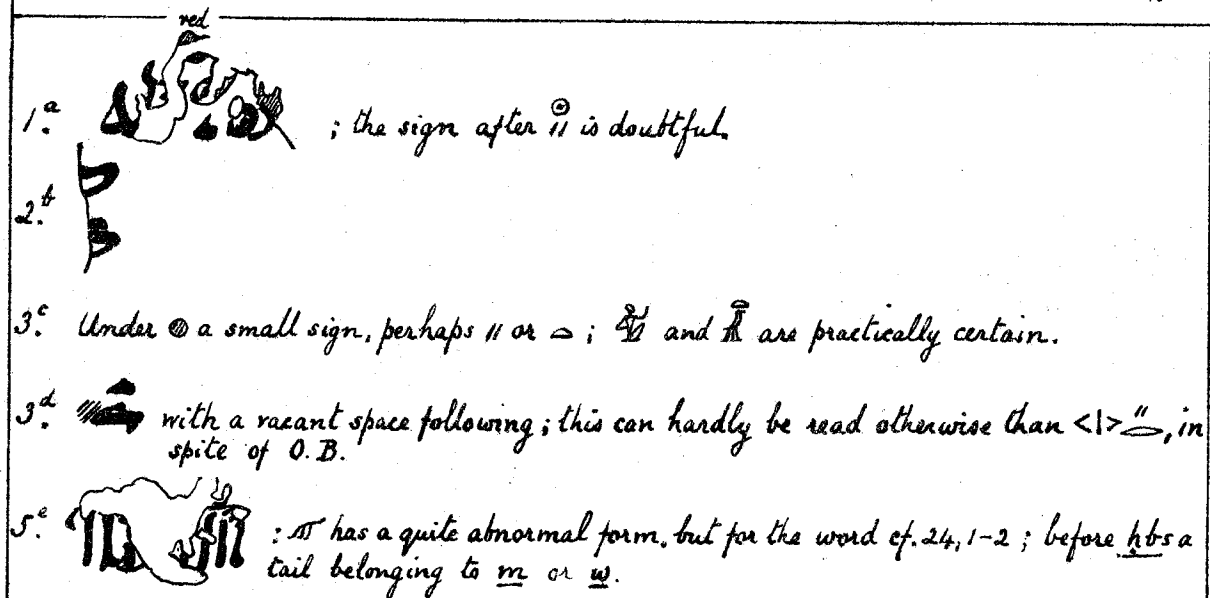 red
1.a ; the sign after 𓇳 \\ is doubtful.
2.b
3.c Under 𓐍 a small sign, perhaps \\ or 𓏏 ; and are practically certain.
3.d with a vacant space following ; this can hardly be read otherwise than <|> \\ 𓂋, in
spite of O.B.
5.e : has a quite abnormal form, but for the word cf. 24, 1-2 ; before ḥbs a
tail belonging to m or w.